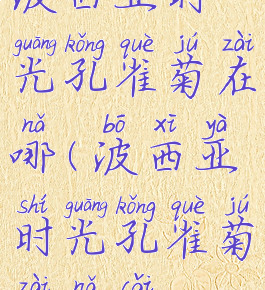 波西亚时
guāng kǒng què jú zài
光孔雀菊在
nǎ bō xī yà
哪(波西亚
shí guāng kǒng què jú
时光孔雀菊
zài nǎ cǎi